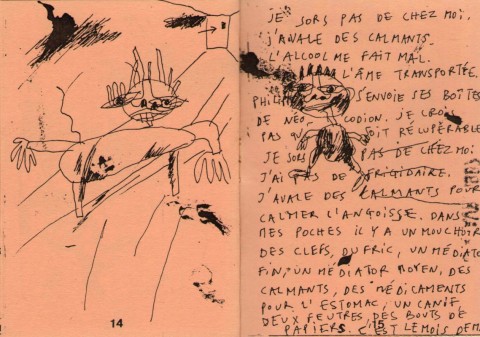 JE SORS PAS DE CHEZ MOI.
J'AVALE DES CALMANTS.
L'ALCOOL ME FAIT MAL.
L'ÂME TRANSPORTÉE.
S'ENVOIE SES BOÎTES
DE NÉO CODION. JE CROIS
PAS QU SOIT RÉCUPÉRABLE
JE SORS PAS DE CHEZ MOI
J'AI PAS DE FRIGIDAIRE.
J'AVALE DES CALMANTS POUR
CALMER L'ANGOISSE. DANS
MES POCHES IL Y A UN MOUCHOIR
DES CLEFS, DU FRIC, UN MÉDIATO
FIN, UN MÉDIATOR MOYEN, DES
CALMANTS, DES MÉDICAMENTS
POUR L'ESTOMAC, UN CANIF,
DEUX FEUTRES, DES BOUTS DE
PAPIERS. C'EST LE MOIS DE
14
15